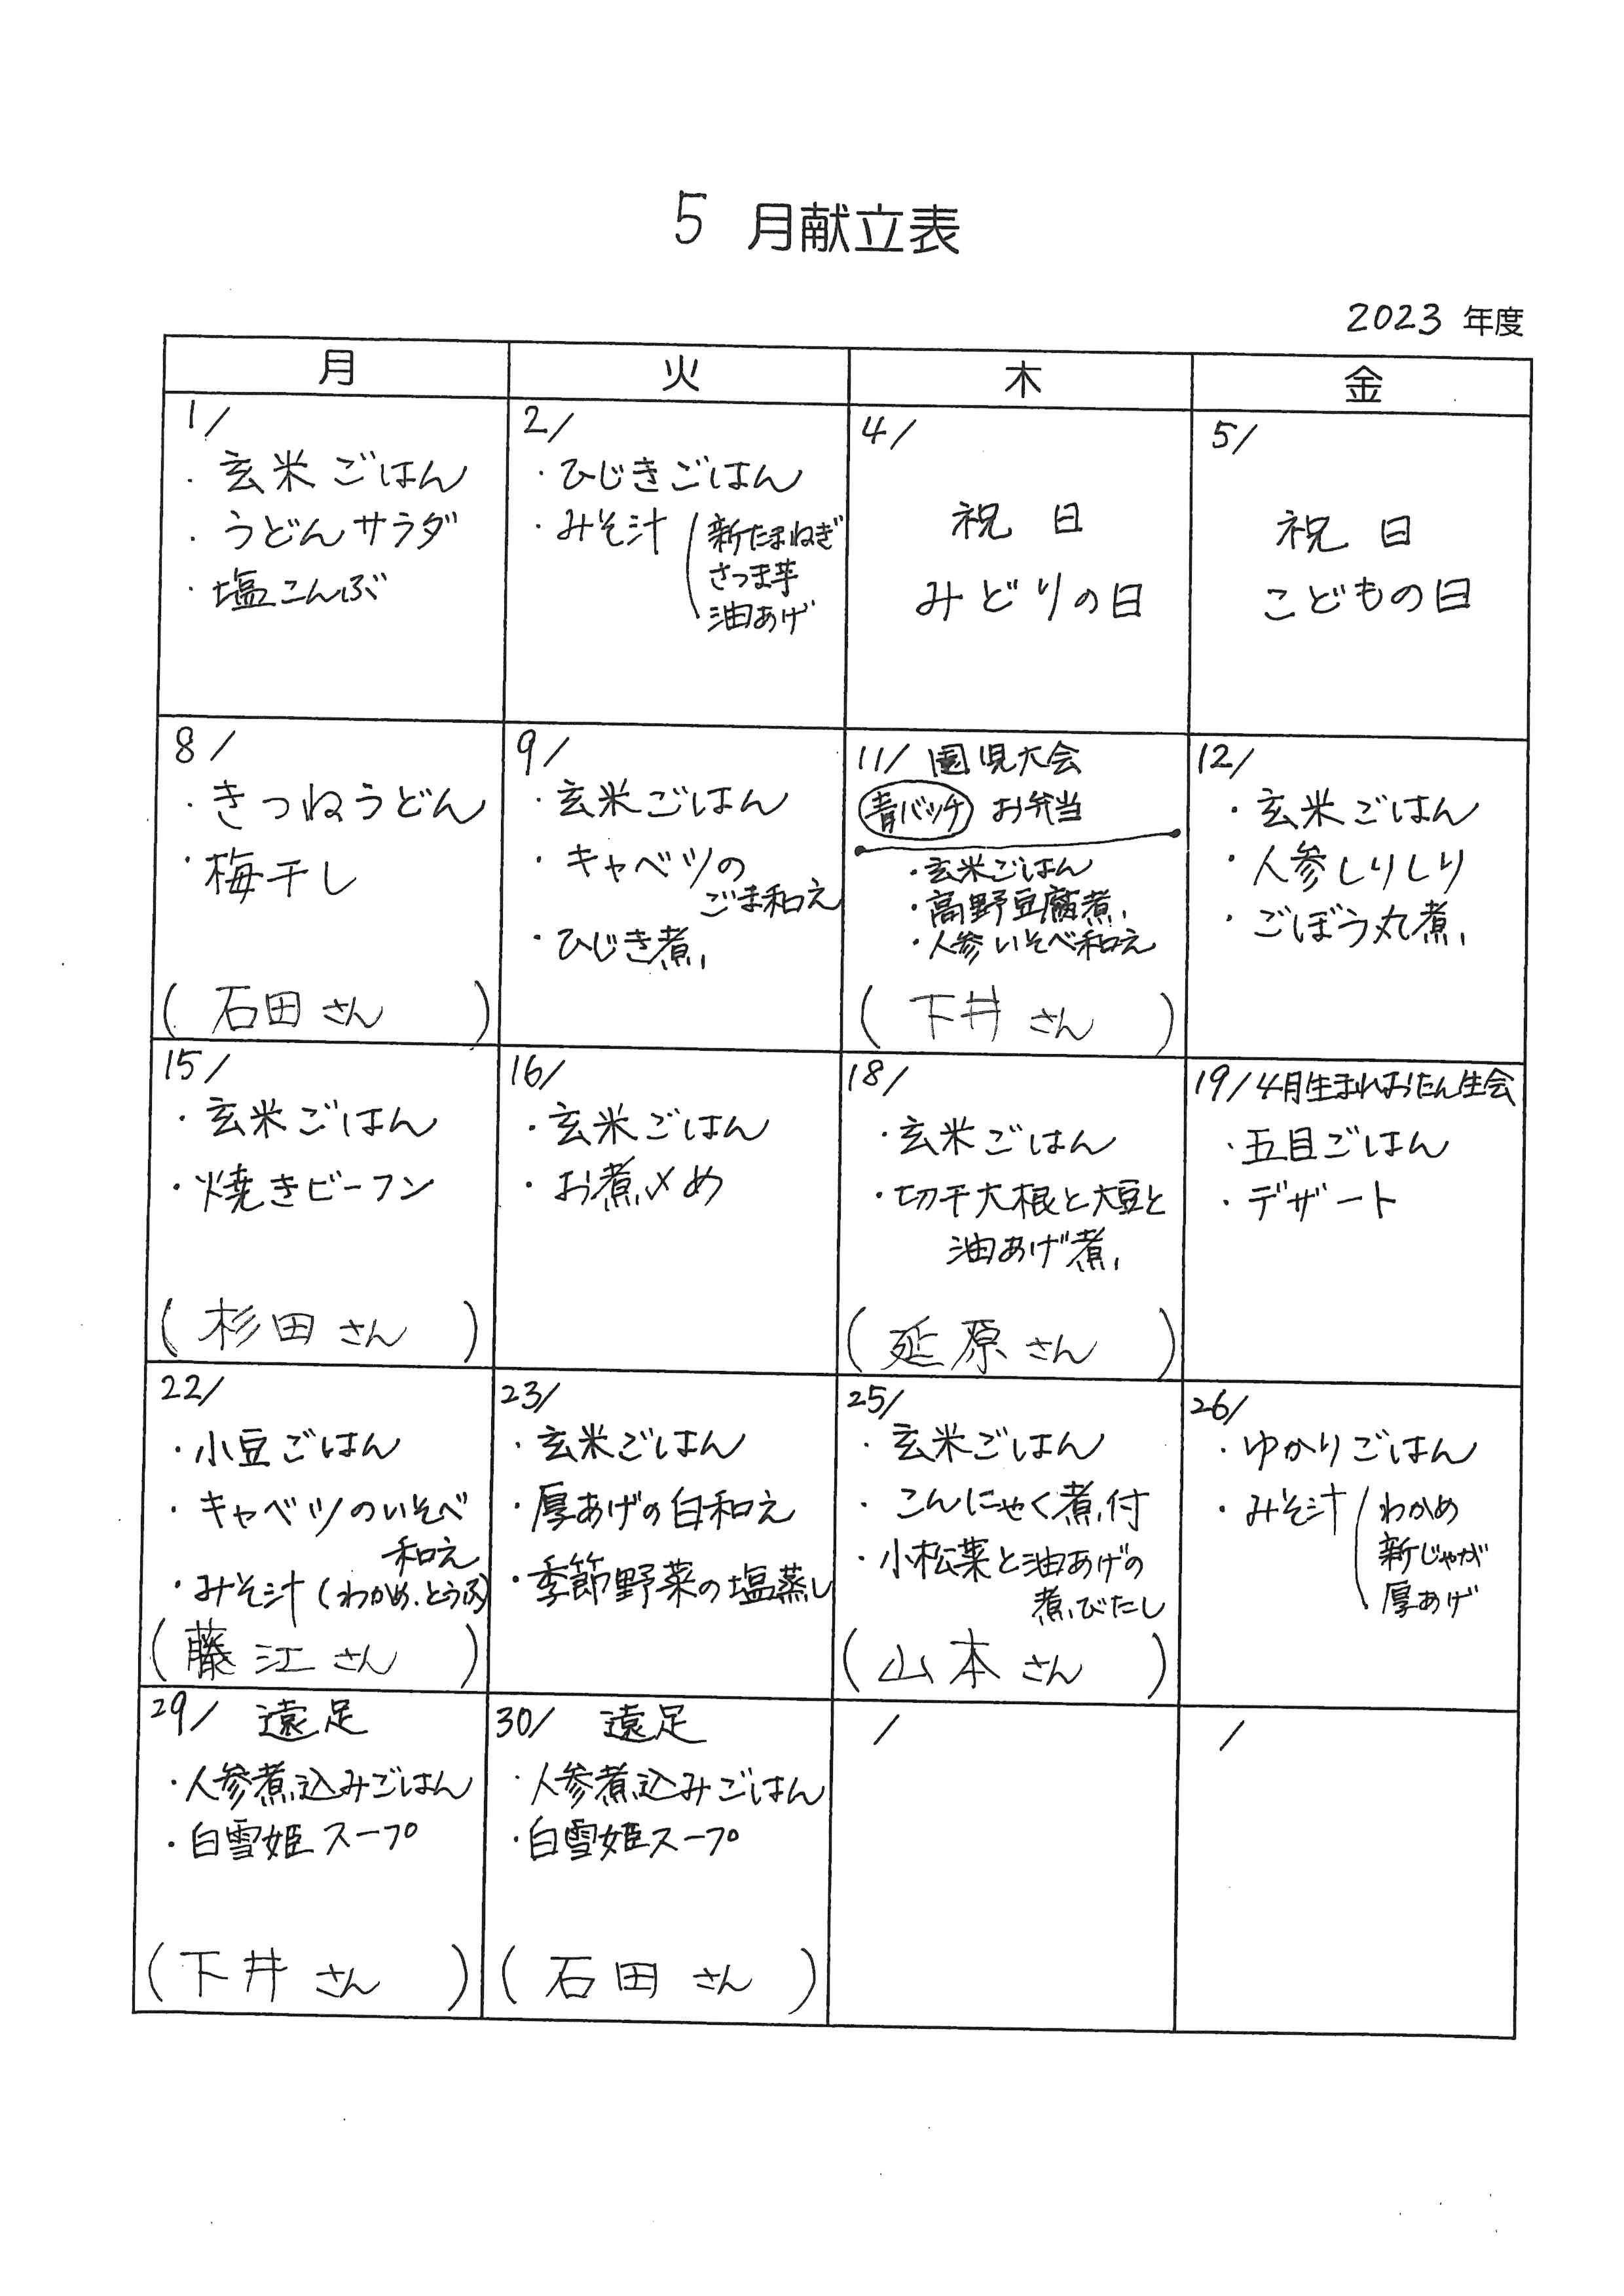 5 月献立表
2023 年度
月 火 木 金
1/
・玄米ごはん
・うどんサラダ
・塩こんぶ
2/
・ひじきごはん
・みそ汁(新たまねぎ
さつま芋
油あげ
4/
祝日
みどりの日
5/
祝日
こどもの日
8/
・きつねうどん
・梅干し
(石田さん)
9/
・玄米ごはん
・キャベツの
ごま和え
・ひじき煮
11/ 園児大会
青バッチ お弁当
・玄米ごはん
・高野豆腐煮
・人参いそべ和え
(下井さん)
12/
・玄米ごはん
・人参しりしり
・ごぼう丸煮
15/
・玄米ごはん
・焼きビーフン
(杉田さん)
16/
・玄米ごはん
・お煮〆め
18/
・玄米ごはん
・切干大根と大豆と
油あげ煮
(延原さん)
19/4月生まれおたん生会
・五目ごはん
・デザート
22/
・小豆ごはん
・キャベツのいそべ
和え
・みそ汁(わかめ、とうふ)
(藤江さん)
23/
・玄米ごはん
・厚あげの白和え
・季節野菜の塩蒸し
25/
・玄米ごはん
・こんにゃく煮付
・小松菜と油あげの
煮びたし
(山本さん)
26/
・ゆかりごはん
・みそ汁(わかめ
新じゃが
厚あげ
29/ 遠足
・人参煮込みごはん
・白雪姫スープ
(下井さん)
30/ 遠足
・人参煮込みごはん
・白雪姫スープ
(石田さん)
/
/